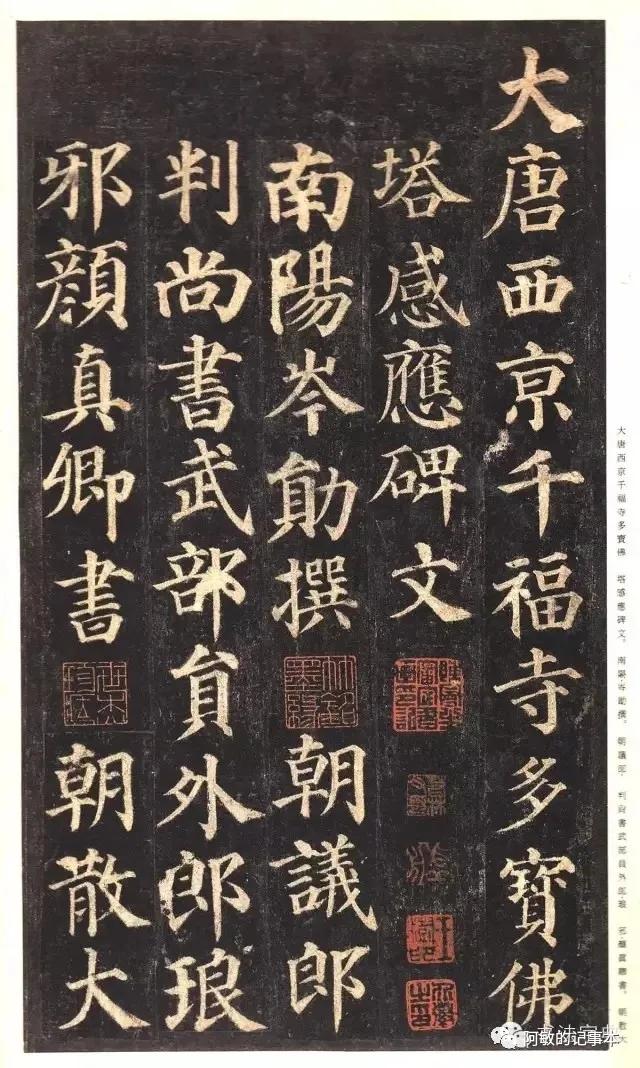 大唐西亰千福寺多寶佛
塔感應碑文
南陽岑勛撰 朝議郎
判尚書武部貟外郎琅
邪顏真卿書 朝散大
大唐西京千福寺多寶佛 塔感應碑文。南陽岑勛撰。朝議郎，判尚書武部員外郎，琅 邪顏真卿書。朝散大
阿敏的记事本